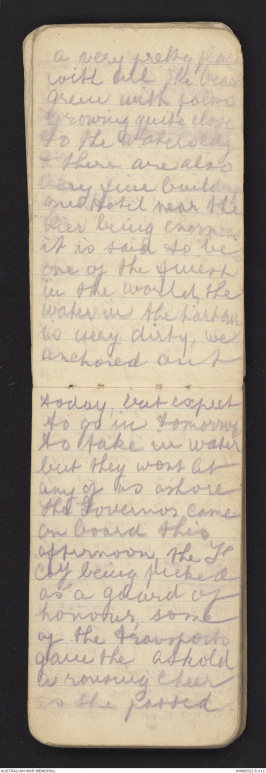 a very pretty place
with all the
green with palms
growing quite close
to the waters edge
& there are also
very fine buildings
one Hotel near the
pier being enormous
it is said to be
one of the finest
in the world, the
water in the harbour
is very dirty, we
anchored out
today, but expect
to go in tomorrow
to take in water
but they wont let
any of us ashore
The Governor came
on board this
afternoon, the
Coy being picked
as a guard of
honour, some
of the transports
gave the Askold
a rousing cheer
as she passed
AUSTRALIAN WAR MEMORIAL